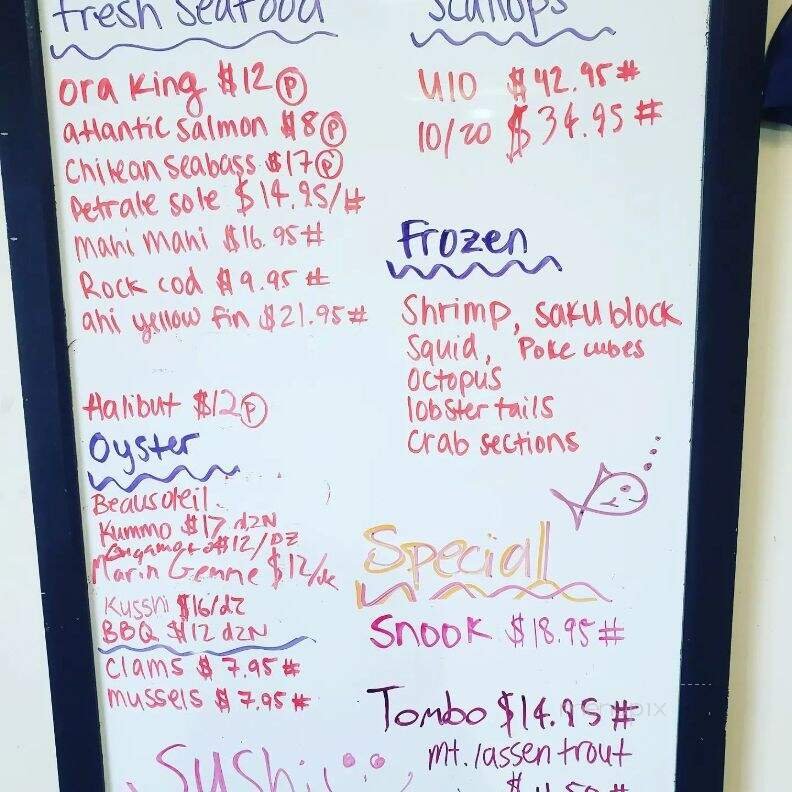 Fresh Seafood
Ora King $12 Ⓟ
atlantic Salmon $18 Ⓟ
Chilean seabass $17 Ⓟ
Petrale sole $14.95/#
Mahi Mahi $16.95#
Rock cod $9.95 #
ahi yellow fin $21.95#
Halibut $12 Ⓟ
Oyster
Beausoleil
Kummo $17 dzN
$12/DZ
Marin Gemme $12/
Kusshi $16/dz
BBQ $12 dzN
Clams $7.95#
mussels $7.95#
Sushi
Scallops
U10 $42.95#
10/20 $34.95#
Frozen
Shrimp, saku block
Squid, Poke cubes
Octopus
lobster tails
Crab sections
Special
Snook $18.95#
Tombo $14.95#
mt. lassen trout